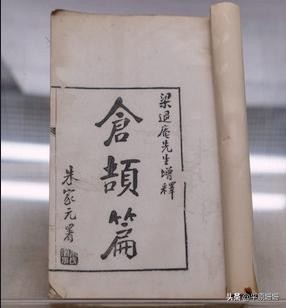 梁退庵先生增釋
倉頡篇
朱家元署
头条